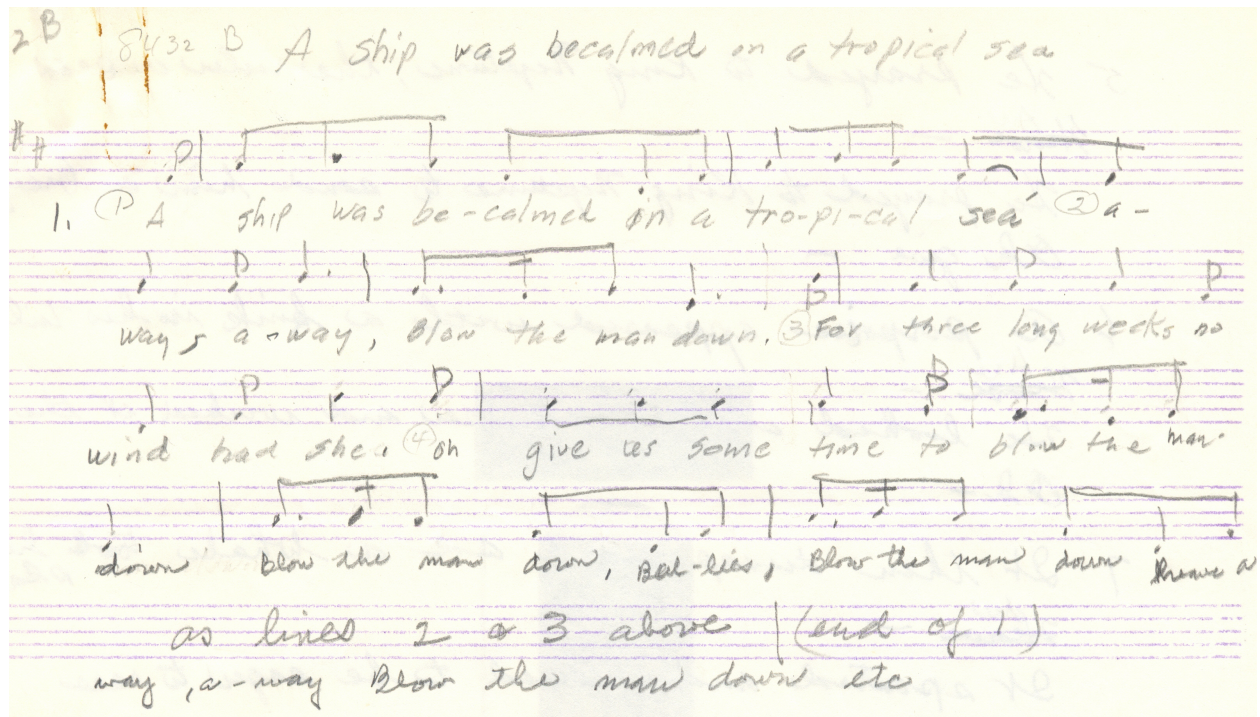 2 B 8432 B A ship was becalmed on a tropical sea
1. ① A ship was be-calmed in a tro-pi-cal sea ② a-
way, a-way, Blow the man down. ③ For three long weeks no
wind had she. ④ oh give us some time to blow the man
down Blow the man down, Bul-lies, Blow the man down heave a
as lines 2 & 3 above (end of 1)
way, a-way Blow the man down etc